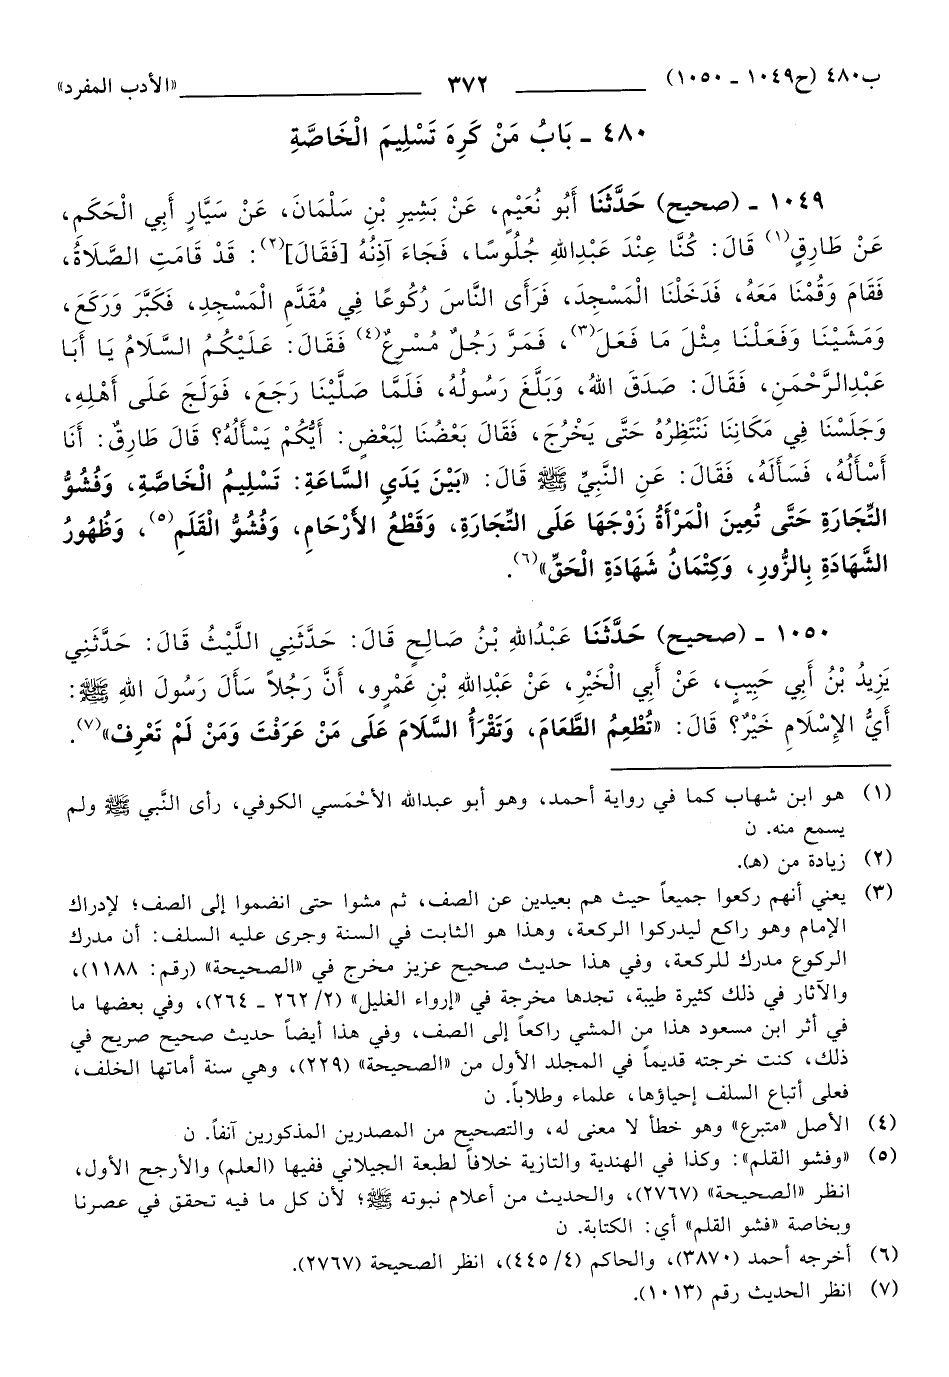 ب٤٨٠ (ح١٠٤٩ ـ ١٠٥٠) ٣٧٢ «الأدب المفرد»
٤٨٠ ـ بَابُ مَنْ كَرِهَ تَسْلِيمَ الْخَاصَّةِ
١٠٤٩ ـ (صحيح) حَدَّثَنَا أَبُو نُعَيْمٍ، عَنْ بَشِيرِ بْنِ سَلْمَانَ، عَنْ سَيَّارٍ أَبِي الْحَكَمِ،
عَنْ طَارِقٍ(١) قَالَ: كُنَّا عِنْدَ عَبْدِاللهِ جُلُوسًا، فَجَاءَ آذِنُهُ [فَقَالَ](٢): قَدْ قَامَتِ الصَّلَاةُ،
فَقَامَ وَقُمْنَا مَعَهُ، فَدَخَلْنَا الْمَسْجِدَ، فَرَأَى النَّاسَ رُكُوعًا فِي مُقَدَّمِ الْمَسْجِدِ، فَكَبَّرَ وَرَكَعَ،
وَمَشَيْنَا وَفَعَلْنَا مِثْلَ مَا فَعَلَ(٣)، فَمَرَّ رَجُلٌ مُسْرِعٌ(٤) فَقَالَ: عَلَيْكُمُ السَّلَامُ يَا أَبَا
عَبْدِالرَّحْمَنِ، فَقَالَ: صَدَقَ اللهُ، وَبَلَّغَ رَسُولُهُ، فَلَمَّا صَلَّيْنَا رَجَعَ، فَوَلَجَ عَلَى أَهْلِهِ،
وَجَلَسْنَا فِي مَكَانِنَا نَنْتَظِرُهُ حَتَّى يَخْرُجَ، فَقَالَ بَعْضُنَا لِبَعْضٍ: أَيُّكُمْ يَسْأَلُهُ؟ قَالَ طَارِقٌ: أَنَا
أَسْأَلُهُ، فَسَأَلَهُ، فَقَالَ: عَنِ النَّبِيِّ ﷺ قَالَ: «بَيْنَ يَدَيِ السَّاعَةِ: تَسْلِيمُ الْخَاصَّةِ، وَفُشُوُّ
التِّجَارَةِ حَتَّى تُعِينَ الْمَرْأَةُ زَوْجَهَا عَلَى التِّجَارَةِ، وَقَطْعُ الأَرْحَامِ، وَفُشُوُّ الْقَلَمِ(٥)، وَظُهُورُ
الشَّهَادَةِ بِالزُّورِ، وَكِتْمَانُ شَهَادَةِ الْحَقِّ»(٦).
١٠٥٠ ـ (صحيح) حَدَّثَنَا عَبْدُاللهِ بْنُ صَالِحٍ قَالَ: حَدَّثَنِي اللَّيْثُ قَالَ: حَدَّثَنِي
يَزِيدُ بْنُ أَبِي حَبِيبٍ، عَنْ أَبِي الْخَيْرِ، عَنْ عَبْدِاللهِ بْنِ عَمْرٍو، أَنَّ رَجُلاً سَأَلَ رَسُولَ اللهِ ﷺ:
أَيُّ الإِسْلَامِ خَيْرٌ؟ قَالَ: «تُطْعِمُ الطَّعَامَ، وَتَقْرَأُ السَّلَامَ عَلَى مَنْ عَرَفْتَ وَمَنْ لَمْ تَعْرِفْ»(٧).
(١) هو ابن شهاب كما في رواية أحمد، وهو أبو عبدالله الأحْمَسي الكوفي، رأى النَّبي ﷺ ولم
يسمع منه. ن
(٢) زيادة من (هـ).
(٣) يعني أنهم ركعوا جميعاً حيث هم بعيدين عن الصف، ثم مشوا حتى انضموا إلى الصف؛ لإدراك
الإمام وهو راكع ليدركوا الركعة، وهذا هو الثابت في السنة وجرى عليه السلف: أن مدرك
الركوع مدرك للركعة، وفي هذا حديث صحيح عزيز مخرج في «الصحيحة» (رقم: ١١٨٨)،
والآثار في ذلك كثيرة طيبة، تجدها مخرجة في «إرواء الغليل» (٢/ ٢٦٢ ـ ٢٦٤)، وفي بعضها ما
في أثر ابن مسعود هذا من المشي راكعاً إلى الصف، وفي هذا أيضاً حديث صحيح صريح في
ذلك، كنت خرجته قديماً في المجلد الأول من «الصحيحة» (٢٢٩)، وهي سنة أماتها الخلف،
فعلى أتباع السلف إحياؤها، علماء وطلاباً. ن
(٤) الأصل «متبرع» وهو خطأ لا معنى له، والتصحيح من المصدرين المذكورين آنفاً. ن
(٥) «وفشو القلم»: وكذا في الهندية والتازية خلافاً لطبعة الجيلاني ففيها (العلم) والأرجح الأول،
انظر «الصحيحة» (٢٧٦٧)، والحديث من أعلام نبوته ﷺ؛ لأن كل ما فيه تحقق في عصرنا
وبخاصة «فشو القلم» أي: الكتابة. ن
(٦) أخرجه أحمد (٣٨٧٠)، والحاكم (٤/ ٤٤٥)، انظر الصحيحة (٢٧٦٧).
(٧) انظر الحديث رقم (١٠١٣).